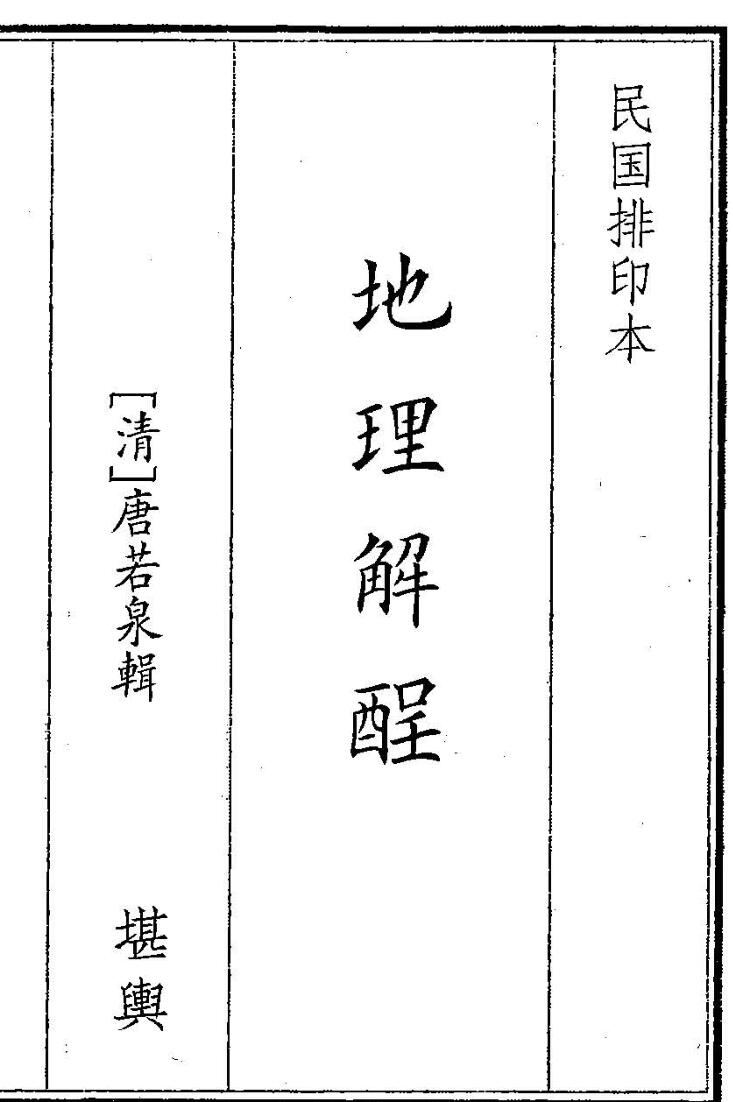 民国排印本
地理解酲
[清]唐若泉輯
堪輿